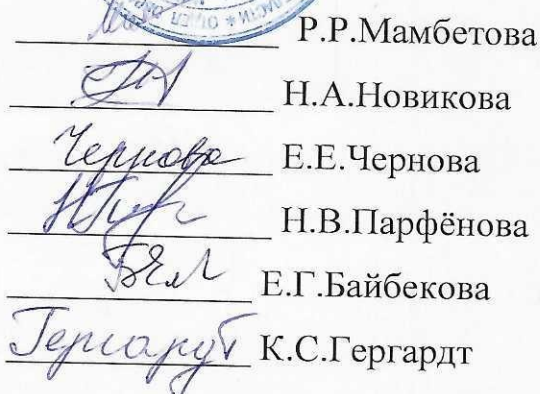 Р.Р.Мамбетова
Н.А.Новикова
Чернова Е.Е.Чернова
Н.В.Парфёнова
Е.Г.Байбекова
Гергардт К.С.Гергардт